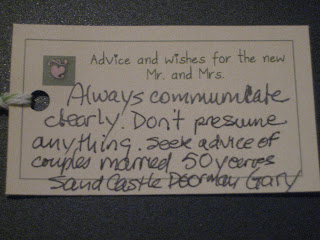 Advice and wishes for the new
Mr. and Mrs.
Always communicate
clearly. Don't presume
anything. Seek advice of
couples married 50 years
Sand Castle Doorman Gary